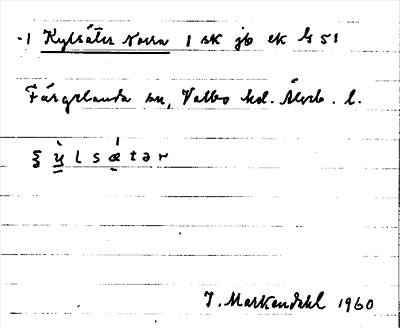 -1 Kylsäter Norra 1 sk jb ek bl 51
Färgelanda sn, Valbo hd. Älvsb. l.
ξ ỳ l s æ t ə r
J. Markendahl 1960